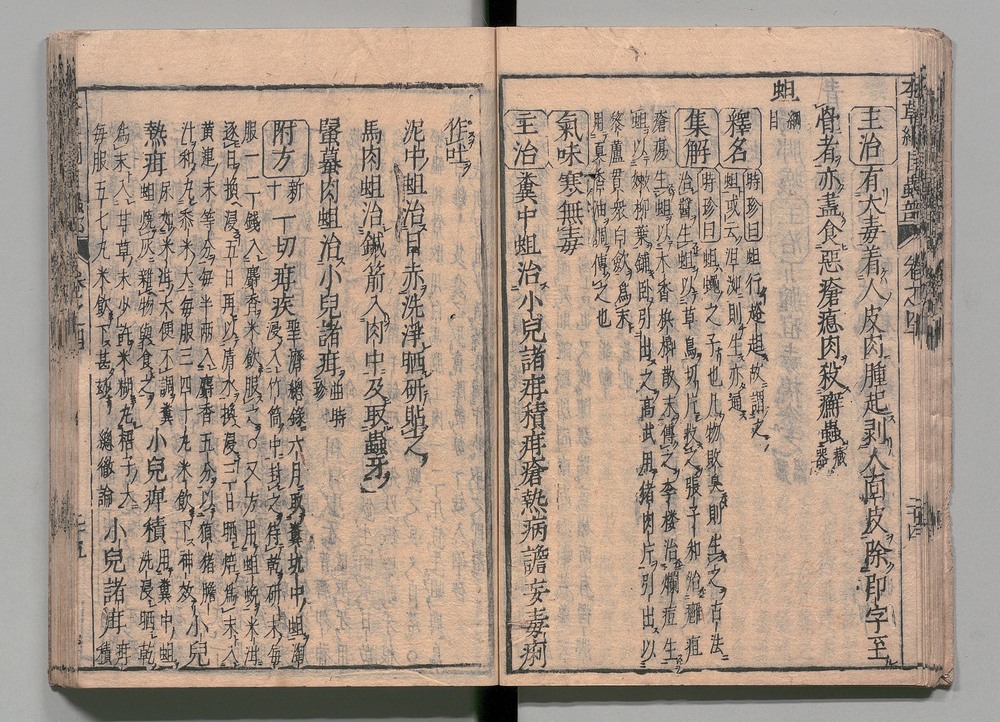 主治 有大毒着人皮肉腫起剥人面皮除印字至
骨者亦盡食惡瘡瘜肉殺癬蟲藏器
蛆 綱目
釋名 時珍曰蛆行趑趄故謂之
蛆或云沮洳則生亦通
集解 時珍曰蛆蠅之子也凡物敗臭則生之古法
治醬生蛆以草烏切片投之張子和治癰疽
瘡瘍生蛆以木香檳榔散末傅之李樓治爛痘生
蛆以嫩柳葉鋪卧引出之高武用猪肉片引出以
藜蘆貫衆白斂爲末
用真香油調傅之也
氣味 寒無毒
主治 糞中蛆治小兒諸疳積疳瘡熱病譫妄毒痢
作吐
泥中蛆治目赤洗淨晒研貼之
馬肉蛆治鍼箭入肉中及取蟲牙
蝦蟇肉蛆治小兒諸疳
附方 新十 一切疳疾 聖濟總錄六月取糞坑中蛆淘
浸入竹筒中封之待乾研末每
服一二錢入麝香米飲服之○又方用蛆蛻米泔
逐日換浸五日再以清水換浸三日晒焙爲末入
黄連末等分每半兩入麝香五分以㹠猪膽
汁和丸黍米大每服三四十丸米飲下神效 小兒
熱疳 尿如米泔大便不調糞
蛆燒灰雜物與食之 小兒疳積 用糞中蛆
洗浸晒乾
爲末入甘草末少許米糊丸梧子大
每服五七丸米飲下甚妙 總微論 小兒諸疳 疳
積